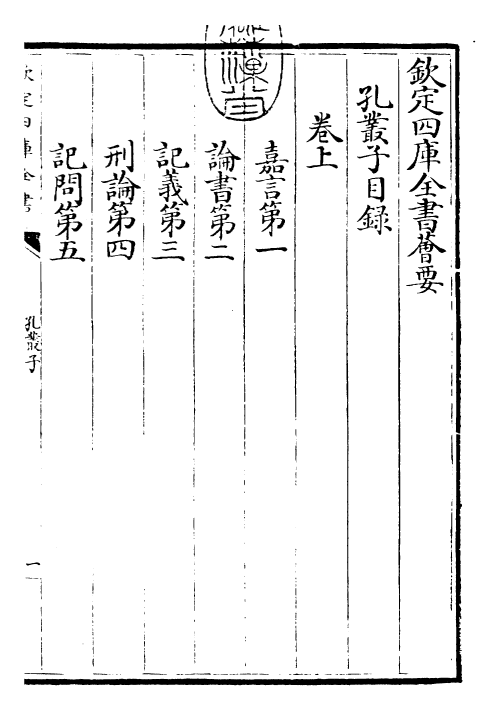 欽定四庫全書薈要
孔叢子目録
卷上
嘉言第一
論書第二
記義第三
刑論第四
記問第五
欽定四庫全書
孔叢子
一